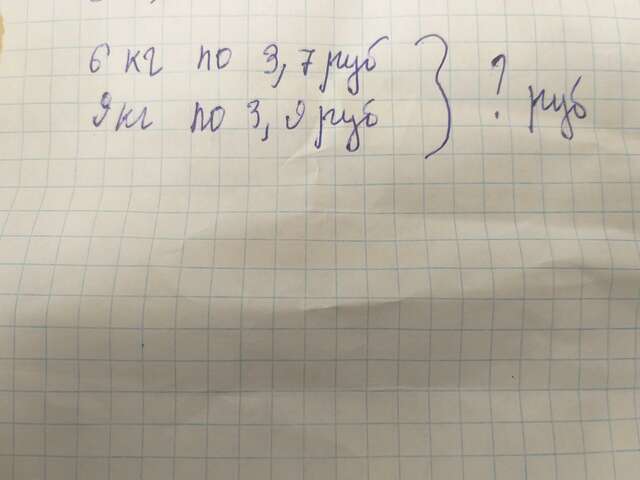 6 кг по 3,7 руб
9 кг по 3,9 руб } ? руб